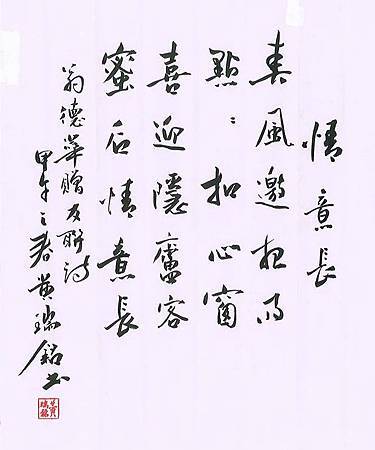 情意長
春風邀夜雨
點〻扣心窗
喜迎隱廬客
蜜后情意長
翁德華贈友聯詩
甲午之春黃瑞銘書